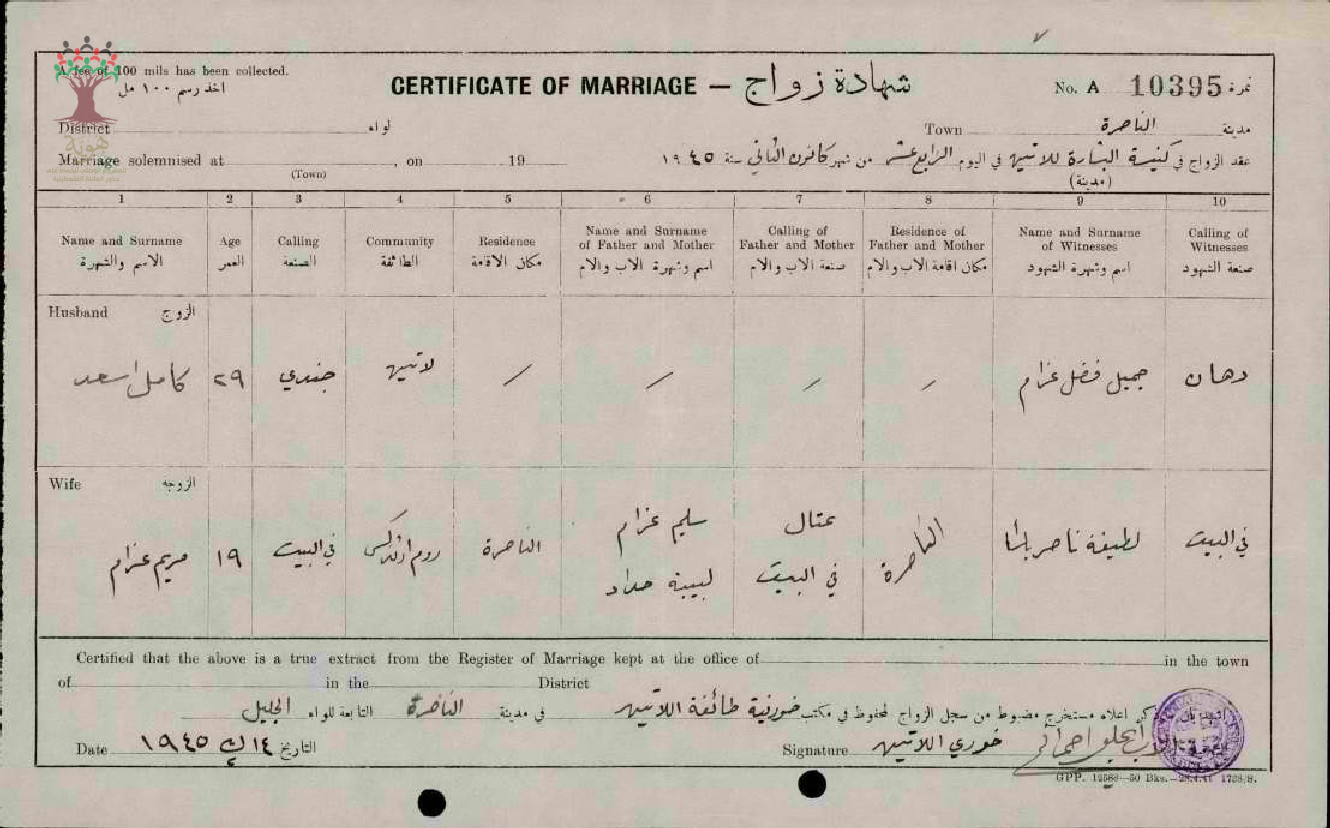 A fee of 100 mils has been collected.
اخذ رسم ١٠٠ مل
CERTIFICATE OF MARRIAGE — شهادة زواج
No. A 10395 نمرة
هوية
District لواء
Town الناصرة مدينة
Marriage solemnised at , on 19
(Town)
عقد الزواج في كنيسة البشارة للاتين في اليوم الرابع عشر من شهر كانون الثاني سنة ١٩٤٥
(مدينة)
1 2 3 4 5 6 7 8 9 10
Name and Surname
الاسم والشهرة
Age
العمر
Calling
الصنعة
Community
الطائفة
Residence
مكان الاقامة
Name and Surname
of Father and Mother
اسم وشهرة الاب والام
Calling of
Father and Mother
صنعة الاب والام
Residence of
Father and Mother
مكان اقامة الاب والام
Name and Surname
of Witnesses
اسم وشهرة الشهود
Calling of
Witnesses
صنعة الشهود
Husband الزوج
كامل اسعد
٢٩
جندي
لاتين
جميل فضل عزام
دهان
Wife الزوجه
مريم عزام
١٩
في البيت
روم ارثدكس
الناصرة
سليم عزام
لبيبة حداد
عتال
في البيت
الناصرة
لطيفة ناصر
في البيت
Certified that the above is a true extract from the Register of Marriage kept at the office of in the town
of in the District
اعلاه مستخرج مضبوط من سجل الزواج المحفوظ في مكتب خورنية طائفة اللاتين في مدينة الناصرة التابعة للواء الجليل
Date ١٤ ك٢ ١٩٤٥ التاريخ
Signature خوري اللاتين
GPP. 1738/8.